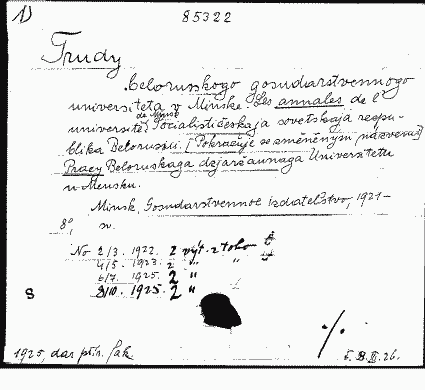 1) 85322
Trudy
Belorusskogo gosudarstvennogo
universiteta v Minske. Les annales de l'
université de Minsk. Socialističeskaja sovetskaja respu-
blika Belorussii. [Pokračuje se změněným názvem:]
Pracy Belaruskaga dzjaržaunaga Universitetu
u Mensku.
Minsk, Gosudarstvennoe izdatel'stvo, 1921-
8°, sv.
No 2/3. 1922. 2 výt. z toho
4/5. 1923. 2 "
6/7. 1925. 2 "
8 8/10. 1925. 2 "
./.
1925, dar přír. fak